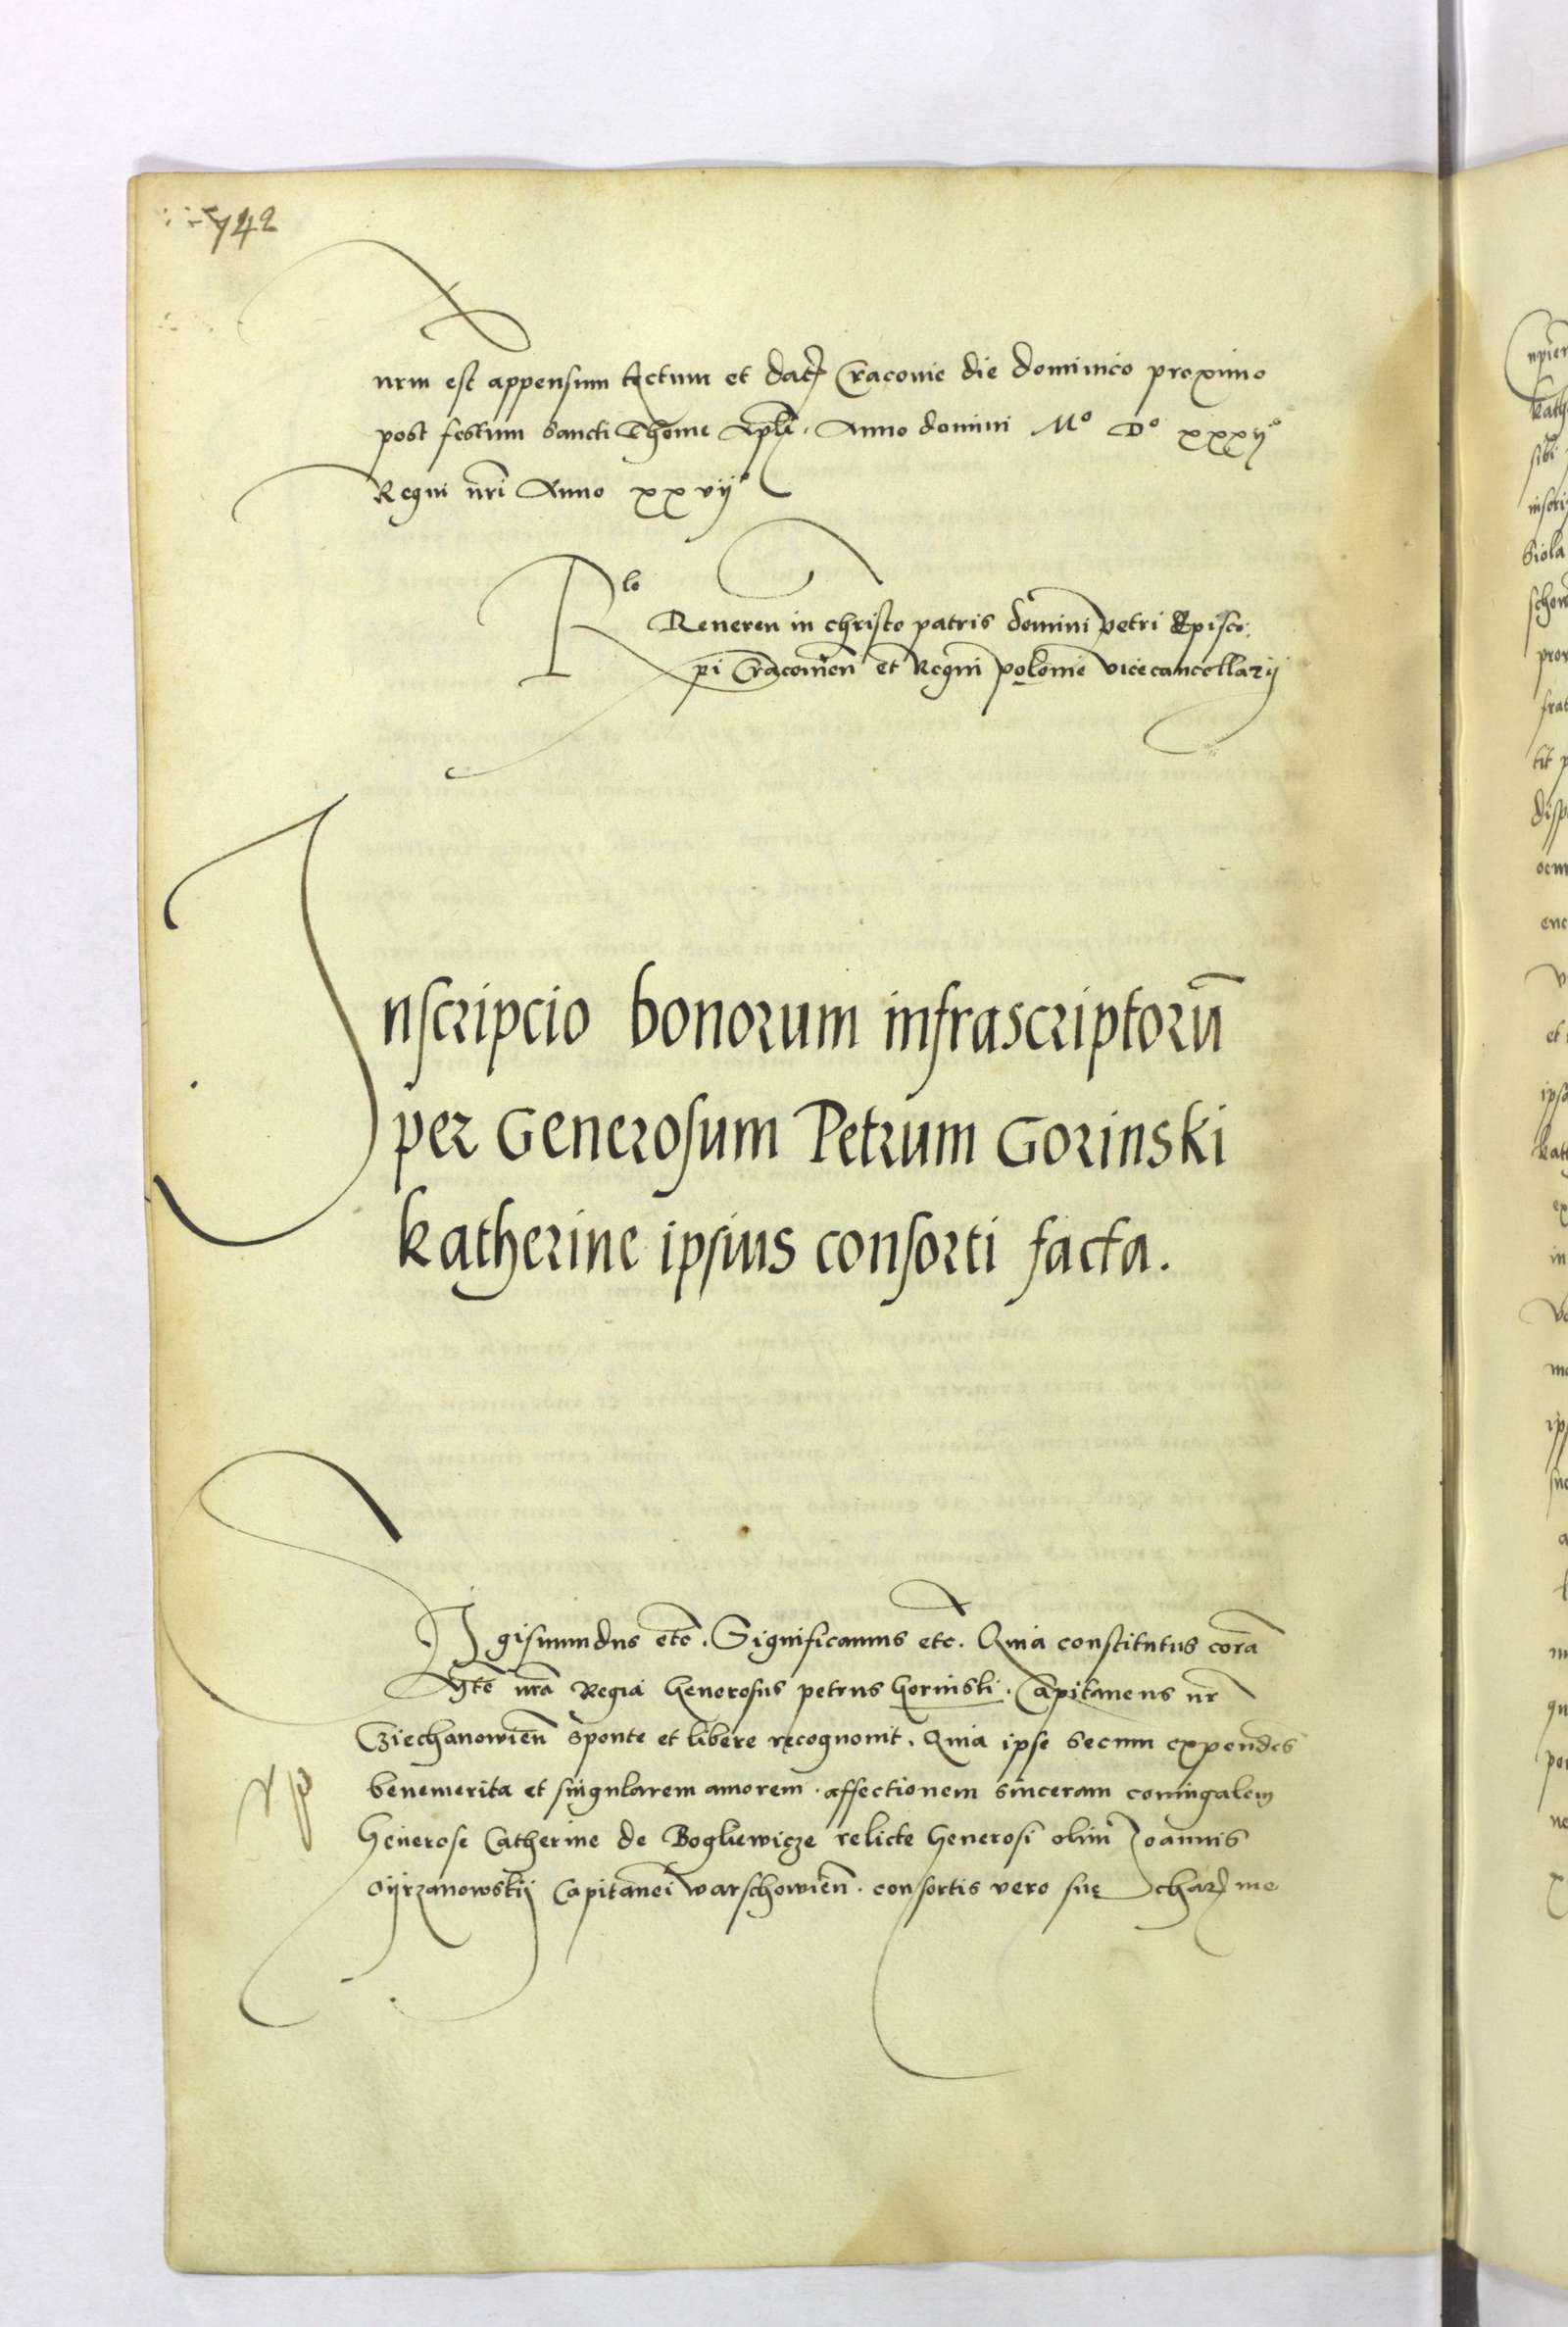 742
nrm est appensum Actum et dat Cracovie die dominico proximo
post festum Sancti Thome Apli. Anno domini Mº Dº xxxijº
Regni nri Anno xxvijº
Rlo Reveren in christo patris domini petri Episco:
pi Cracovien et Regni polonie vicecancellarij
Inscripcio bonorum infrascriptorū
per Generosum Petrum Gorinski
Katherine ipsius consorti facta.
Sigismundus etc. Significamus etc. Quia constitutus corā
Mte nrā Regia Generosus petrus Gorinski. Capitaneus nr
Cziechanowien sponte et libere recognovit. Quia ipse secum expendes
benemerita et singularem amorem affectionem sinceram coniugalem
Generose Catherine de Bogliewicze relicte Generosi olim Joannis
Oyrzanowskij Capitanei warschowien. consortis vero suę char me